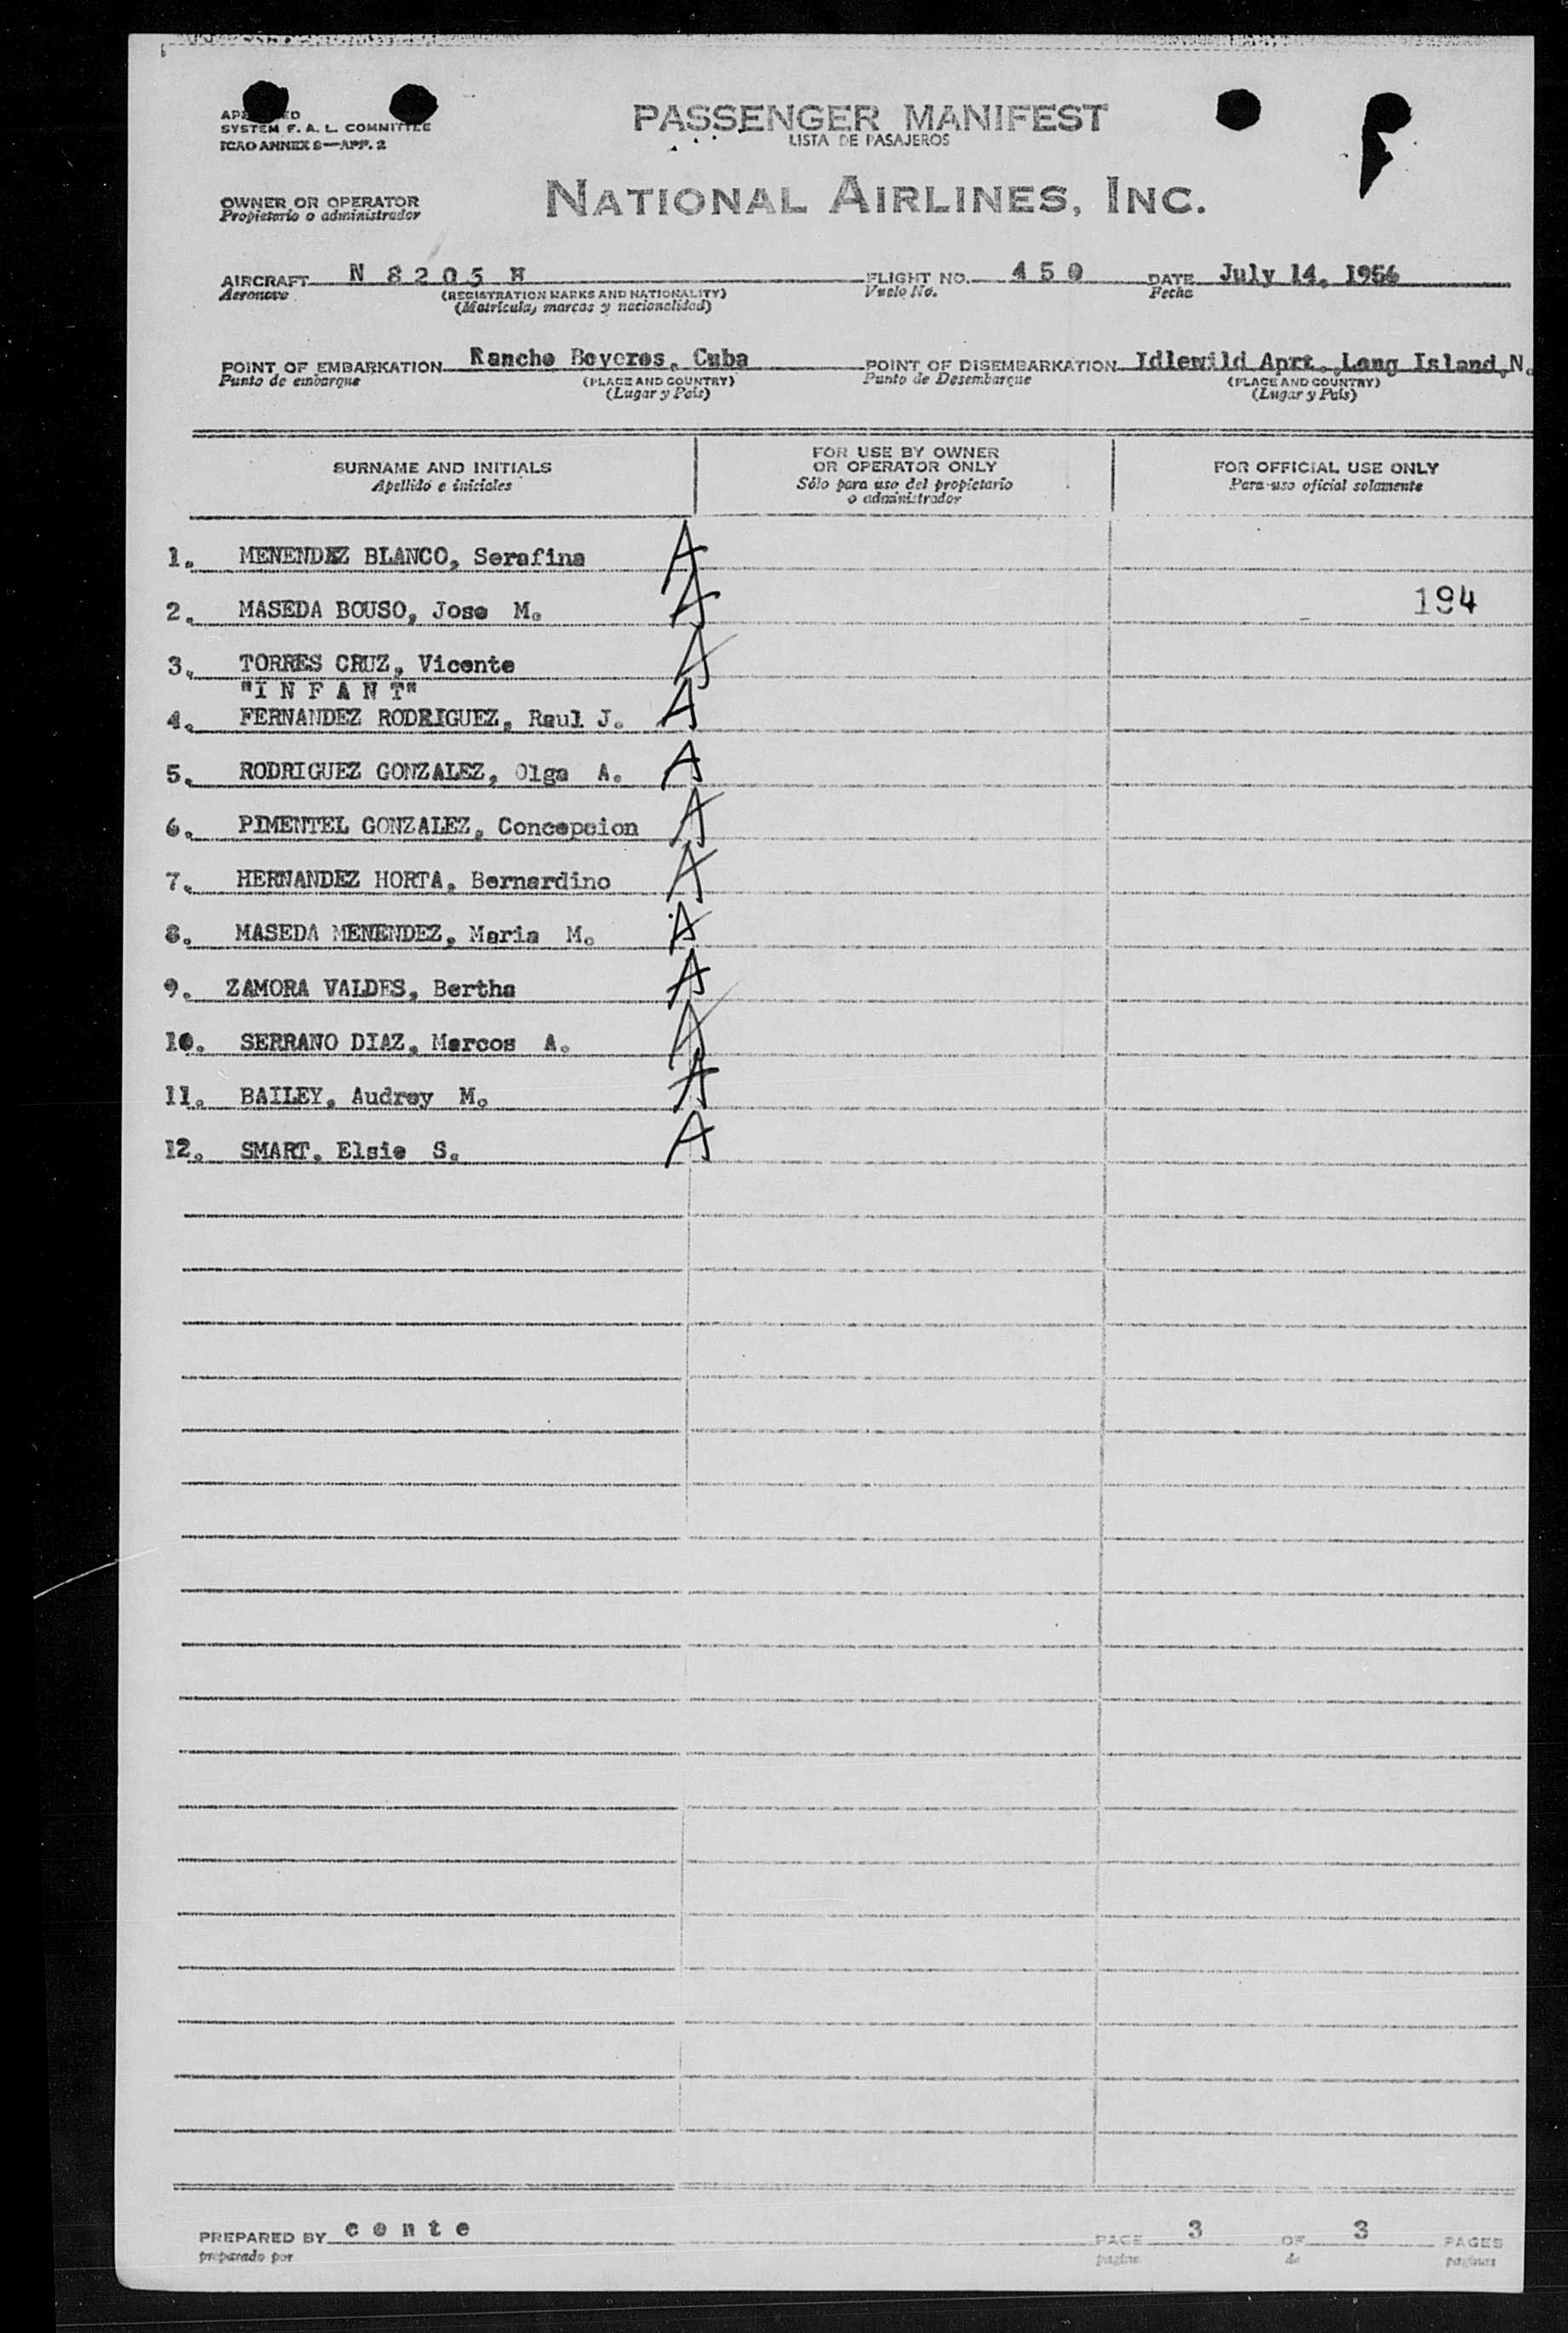 SYSTEM F. A. L. COMMITTEE
ICAO ANNEX 9—APP. 2
PASSENGER MANIFEST
LISTA DE PASAJEROS
OWNER OR OPERATOR
Propietario o administrador
NATIONAL AIRLINES, INC.
AIRCRAFT N 8 2 0 5 H FLIGHT NO. 4 5 0 DATE July 14, 1956
Aeronave (REGISTRATION MARKS AND NATIONALITY) Vuelo No. Fecha
(Matricula, marcas y nacionalidad)
POINT OF EMBARKATION Rancho Boyeros, Cuba POINT OF DISEMBARKATION Idlewild Aprt. Long Island, N.
Punto de embarque (PLACE AND COUNTRY) Punto de Desembarque (PLACE AND COUNTRY)
(Lugar y País) (Lugar y País)
SURNAME AND INITIALS
Apellido e iniciales
FOR USE BY OWNER
OR OPERATOR ONLY
Sólo para uso del propietario
o administrador
FOR OFFICIAL USE ONLY
Para uso oficial solamente
1. MENENDEZ BLANCO, Serafina A
194
2. MASEDA BOUSO, Jose M. A
3. TORRES CRUZ, Vicente A
"I N F A N T"
4. FERNANDEZ RODRIGUEZ, Raul J. A
5. RODRIGUEZ GONZALEZ, Olga A. A
6. PIMENTEL GONZALEZ, Concepcion A
7. HERNANDEZ HORTA, Bernardino A
8. MASEDA MENENDEZ, Maria M. A
9. ZAMORA VALDES, Bertha A
10. SERRANO DIAZ, Marcos A. A
11. BAILEY, Audrey M. A
12. SMART, Elsie S. A
PREPARED BY c o n t e PAGE 3 OF 3 PAGES
preparado por pagina de paginas